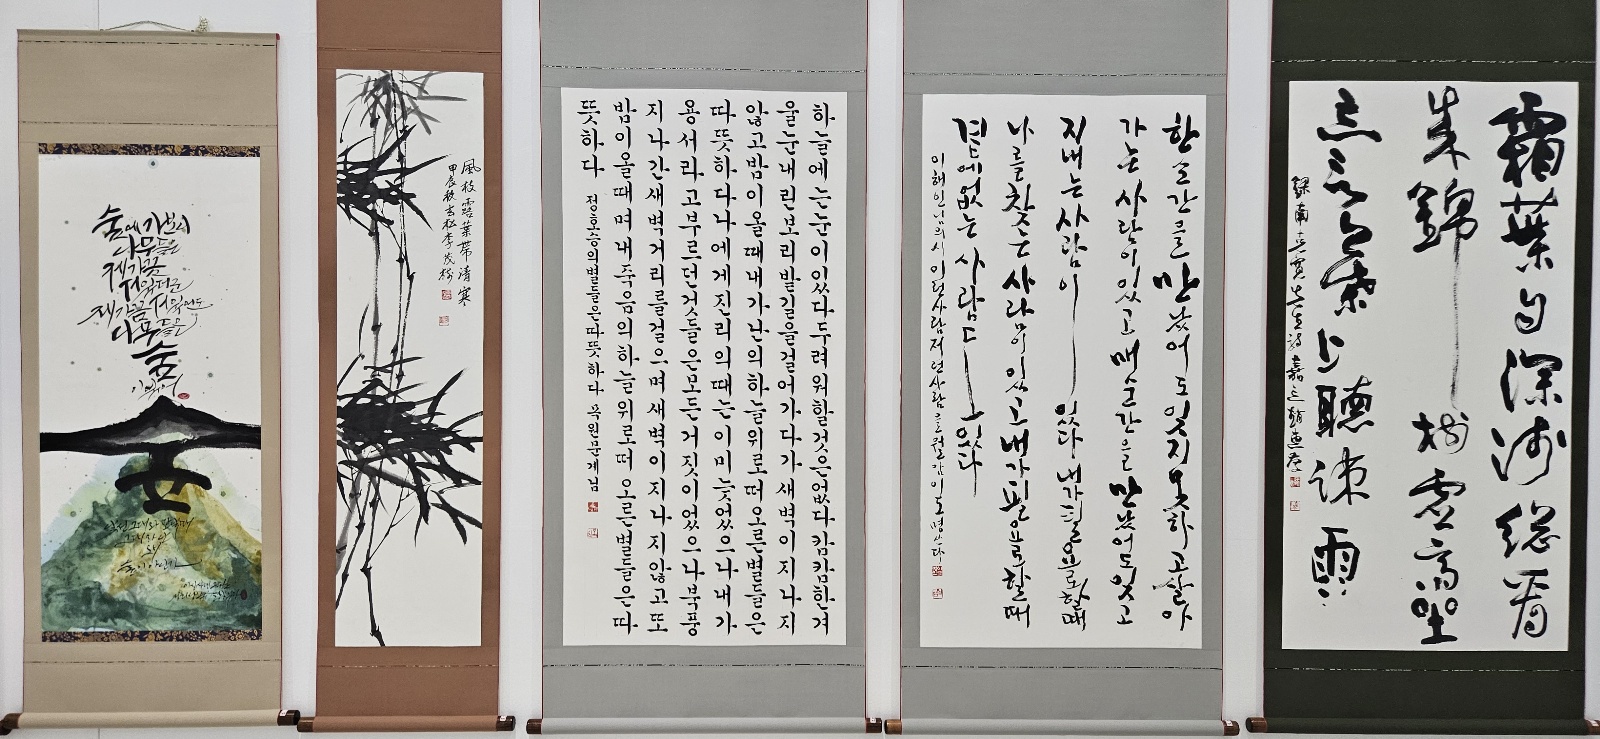 숲에 가보니
나무들은
제가끔
서 있더군
제가끔 서 있어도
나무들은
숲
이었어
낯선 그대와 만날 때
그대와 나는
왜
숲이 아닌가
風枝露葉帶清寒
甲辰秋玄松李茂松
하늘에는눈이있다두려워할것은없다캄캄한겨
울눈내린보리밭길을걸어가다가새벽이지나지
않고밤이올때내가난의하늘위로떠오른별들은
따뜻하다나에게진리의때는이미늦었으나내가
용서라고부르던것들은모든거짓이었으나북풍
지나간새벽거리를걸으며새벽이지나지않고또
밤이올때며내죽음의하늘위로떠오른별들은따
뜻하다 정호승의별들은따뜻하다 목원문계님
한순간을만났어도잊지못하고살아
가는사람이있고매순간을만났어도잊고
지내는사람이있다내가필요로할때
나를찾는사람이있고내가필요로할때
곁에없는사람도있다
이해인님의시이런사람저런사람을
霜葉自深淺總看
成錦樹虛坐
忘言葉上聽疎雨
先生詩